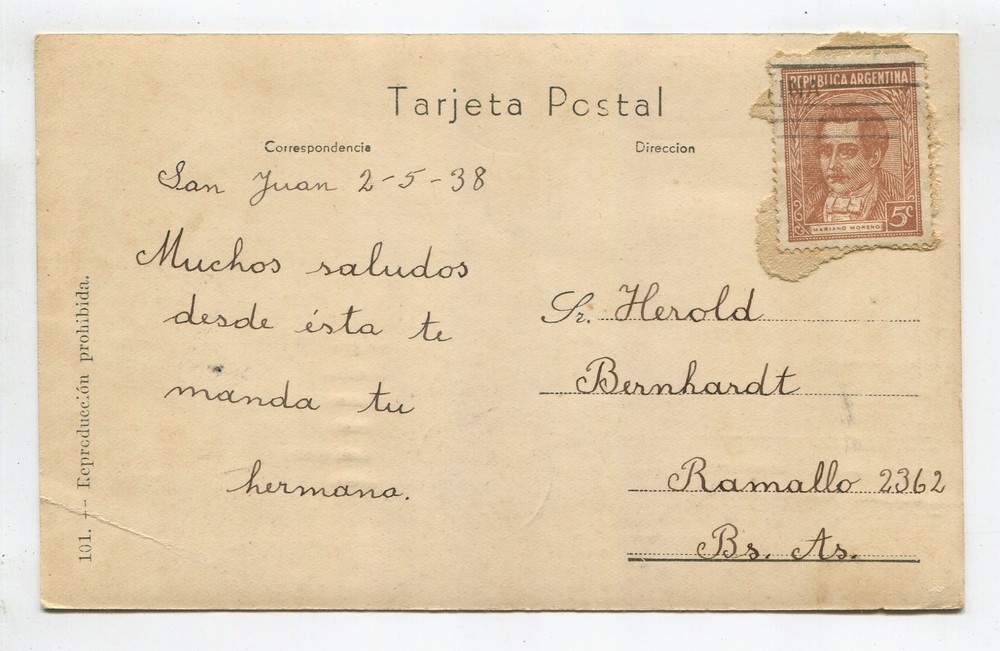 Tarjeta Postal
Correspondencia
Direccion
REPUBLICA ARGENTINA
MARIANO MORENO
5c
San Juan 2-5-38
Muchos saludos
desde ésta te
manda tu
hermana.
Sr. Herold
Bernhardt
Ramallo 2362
Bs. As.
101. -- Reproducción prohibida.